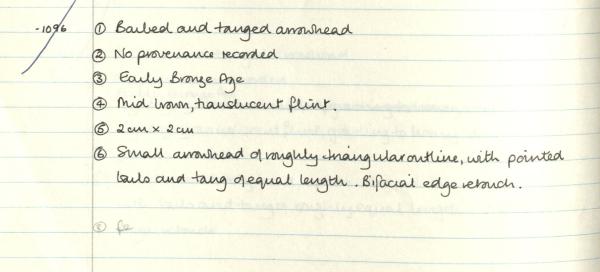 -1096 ① Barbed and tanged arrowhead
② No provenance recorded
③ Early Bronze Age
④ Mid brown, translucent flint.
⑤ 2cm × 2cm
⑥ Small arrowhead of roughly triangular outline, with pointed
barbs and tang of equal length. Bifacial edge retouch.